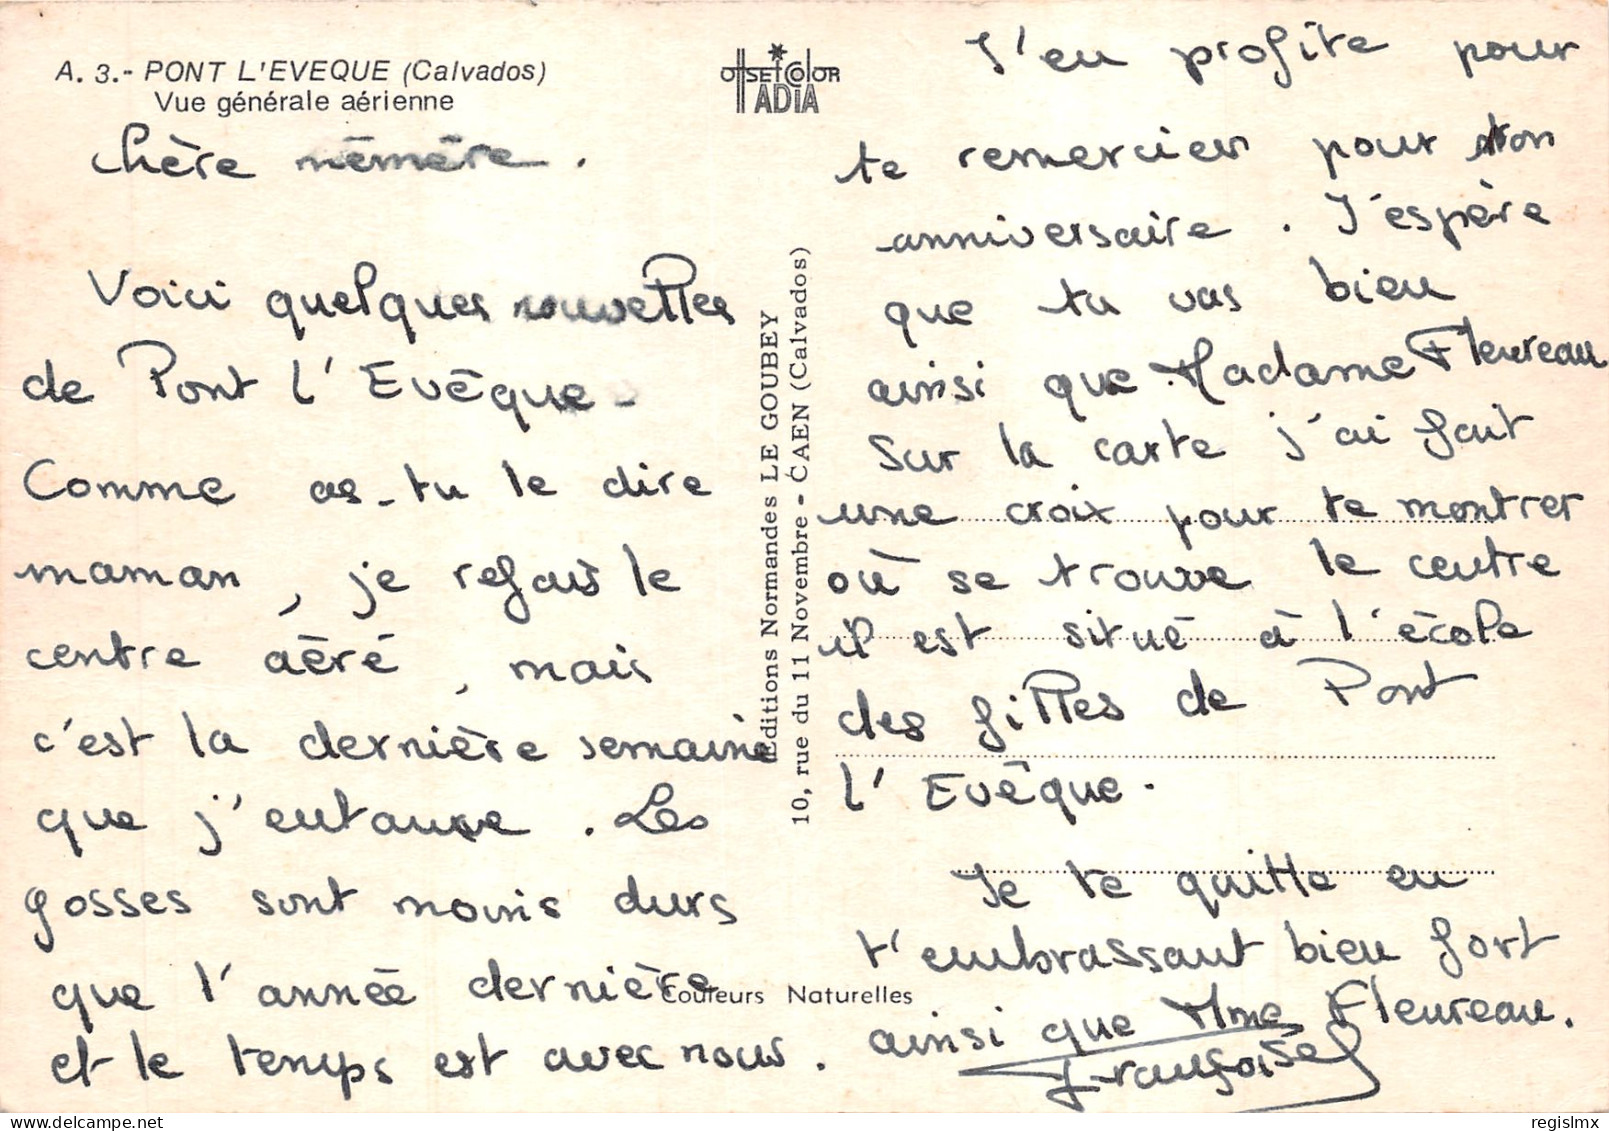 A. 3.- PONT L'EVEQUE (Calvados)
Vue générale aérienne
Chère mémère.
Voici quelques nouvelles
de Pont l'Evêque.
Comme as-tu le dire
maman, je refais le
centre aéré, mais
c'est la dernière semaine
que j'entame. Les
gosses sont moins durs
que l'année dernière
et le temps est avec nous.
OFFSET COLOR
ADIA
Editions Normandes LE GOUBEY
10, rue du 11 Novembre - CAEN (Calvados)
Couleurs Naturelles
J'en profite pour
te remercier pour
anniversaire. J'espère
que tu vas bien
ainsi que Madame Fleureau
Sur la carte j'ai fait
une croix pour te montrer
où se trouve le centre
il est situé à l'école
des filles de Pont
l'Evêque.
Je te quitte en
t'embrassant bien fort
ainsi que Mme Fleureau.
Françoise
regislmx